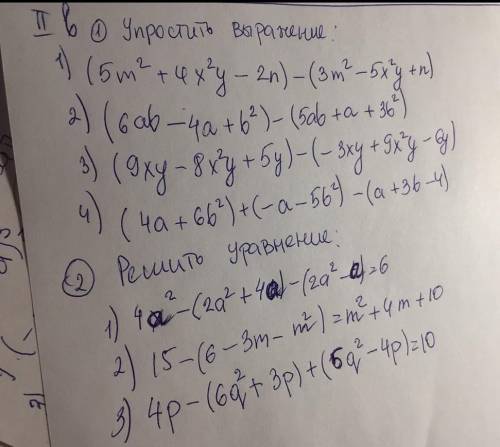 II в ① Упростить выражение:
1) (5m² + 4x²y − 2n) − (3m² − 5x²y + n)
2) (6ab − 4a + b²) − (5ab + a + 3b²)
3) (9xy − 8x²y + 5y) − (−3xy + 9x²y − 6y)
4) (4a + 6b²) + (−a − 5b²) − (a + 3b − 4)
② Решить уравнение:
1) 4a² − (2a² + 4a) − (2a² − a) = 6
2) 15 − (6 − 3m − m²) = m² + 4m + 10
3) 4p − (6q² + 3p) + (6q² − 4p) = 10